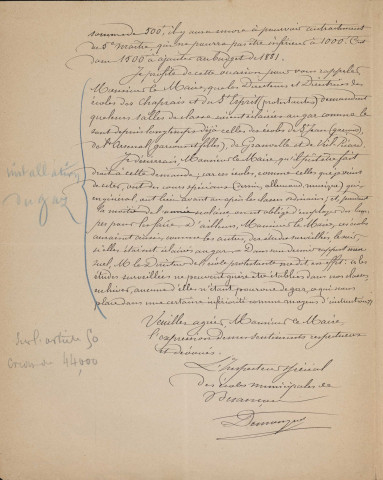 somme de 500f. il y aura encore à pourvoir au traitement
du 5e maître, qui ne pourra pas être inférieur à 1000f. C'est
donc 1500 à ajouter au budget de 1881.
Je profite de cette occasion pour vous rappeler,
Monsieur le Maire, que les Directeurs et Directrices des
écoles des Chaprais et du St Esprit (protestantes) demandent
que leurs salles de classe soient éclairées au gaz comme le
sont depuis longtemps déjà celles des écoles de St Jean (garçons),
de l'Arsenal (garçons et filles), de Granvelle et de
Je désirerais, Monsieur le Maire, qu'il pût être fait
droit à cette demande, car ces écoles, comme celles que je viens
de citer, ont des cours spéciaux (dessin, allemand, musique) qui,
en général, ont lieu avant ou après les classes ordinaires, et pendant
la moitié de l'année scolaire on est obligé d'employer des lampes
pour les faire. D'ailleurs, Monsieur le Maire, ces écoles
auraient aussi, comme les autres, des études surveillées, le soir,
si elles étaient éclairées au gaz. Dans son dernier rapport mensuel,
M. le Directeur de l'école protestante me dit en effet: « les
études surveillées ne peuvent guère être établies dans nos classes,
en hiver, aucune d'elles n'étant pourvue de gaz, ce qui nous
place dans une certaine infériorité comme moyens d'instruction. »
Veuillez agréer, Monsieur le Maire,
l'expression de mes sentiments respectueux
et dévoués.
L'Inspecteur spécial
des écoles municipales de
Besançon
installation
du gaz
Sur l'article 50
Crédit de 44,000